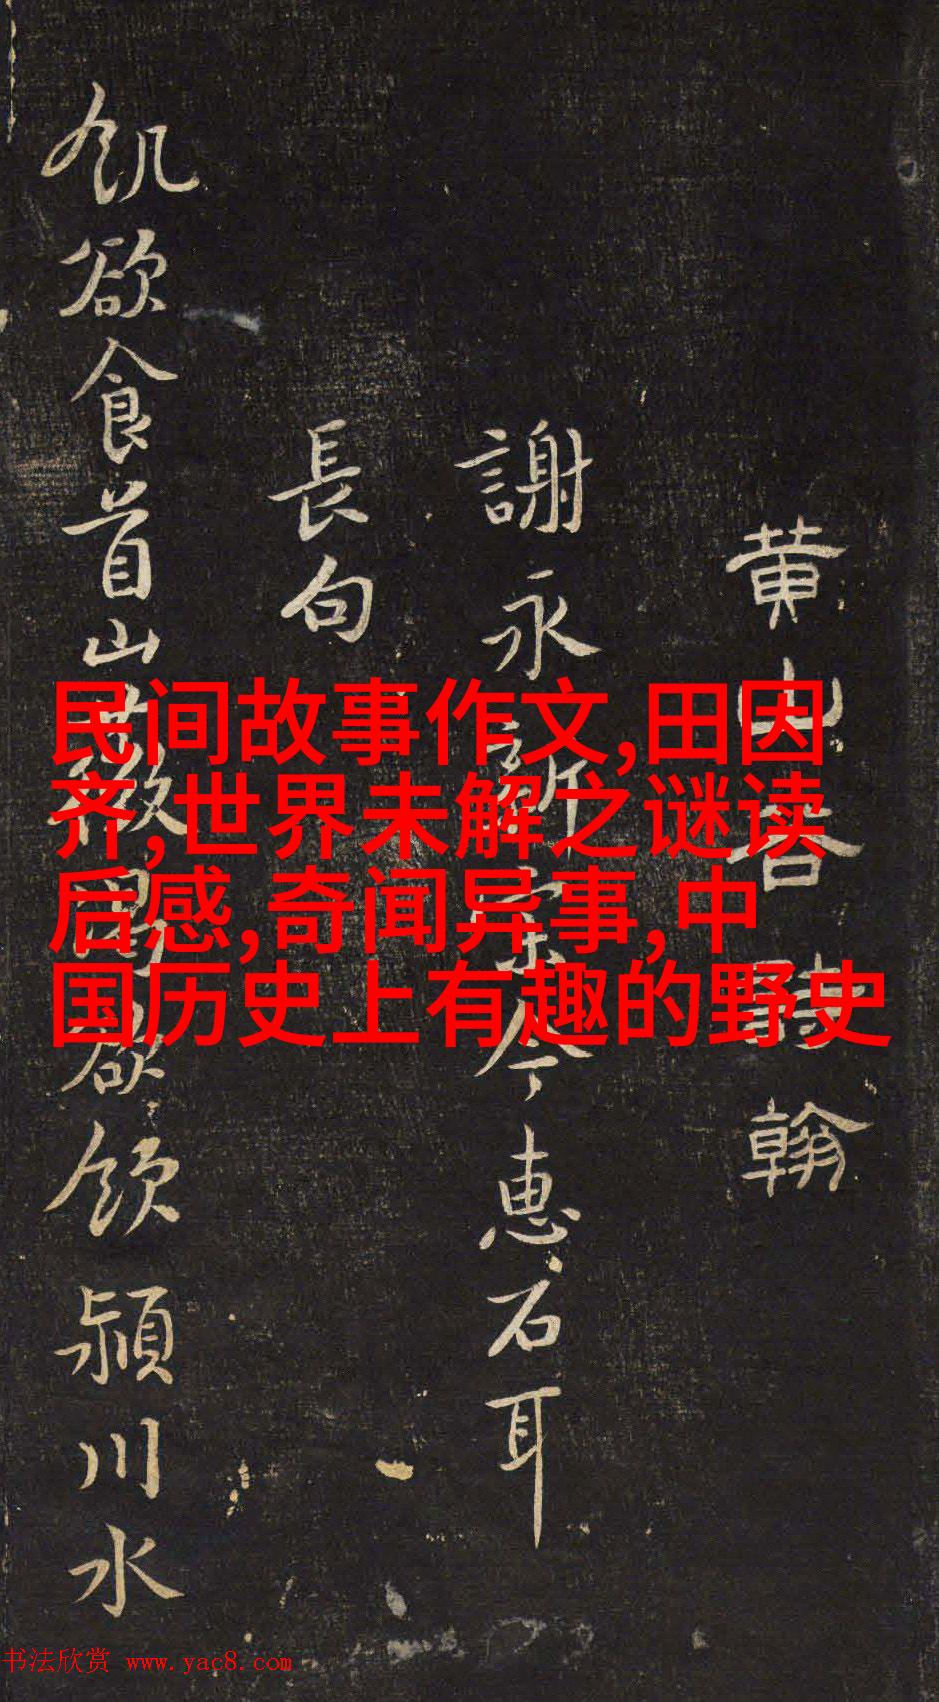 黄山谷詩翰
謝永新宗令惠石耳
長句
飢欲食首山薇渴欲飲潁川水
民间故事作文,田因
齐,世界未解之谜读
后感,奇闻异事,中
国历史上有趣的野史
书法欣赏 www.yac8.com